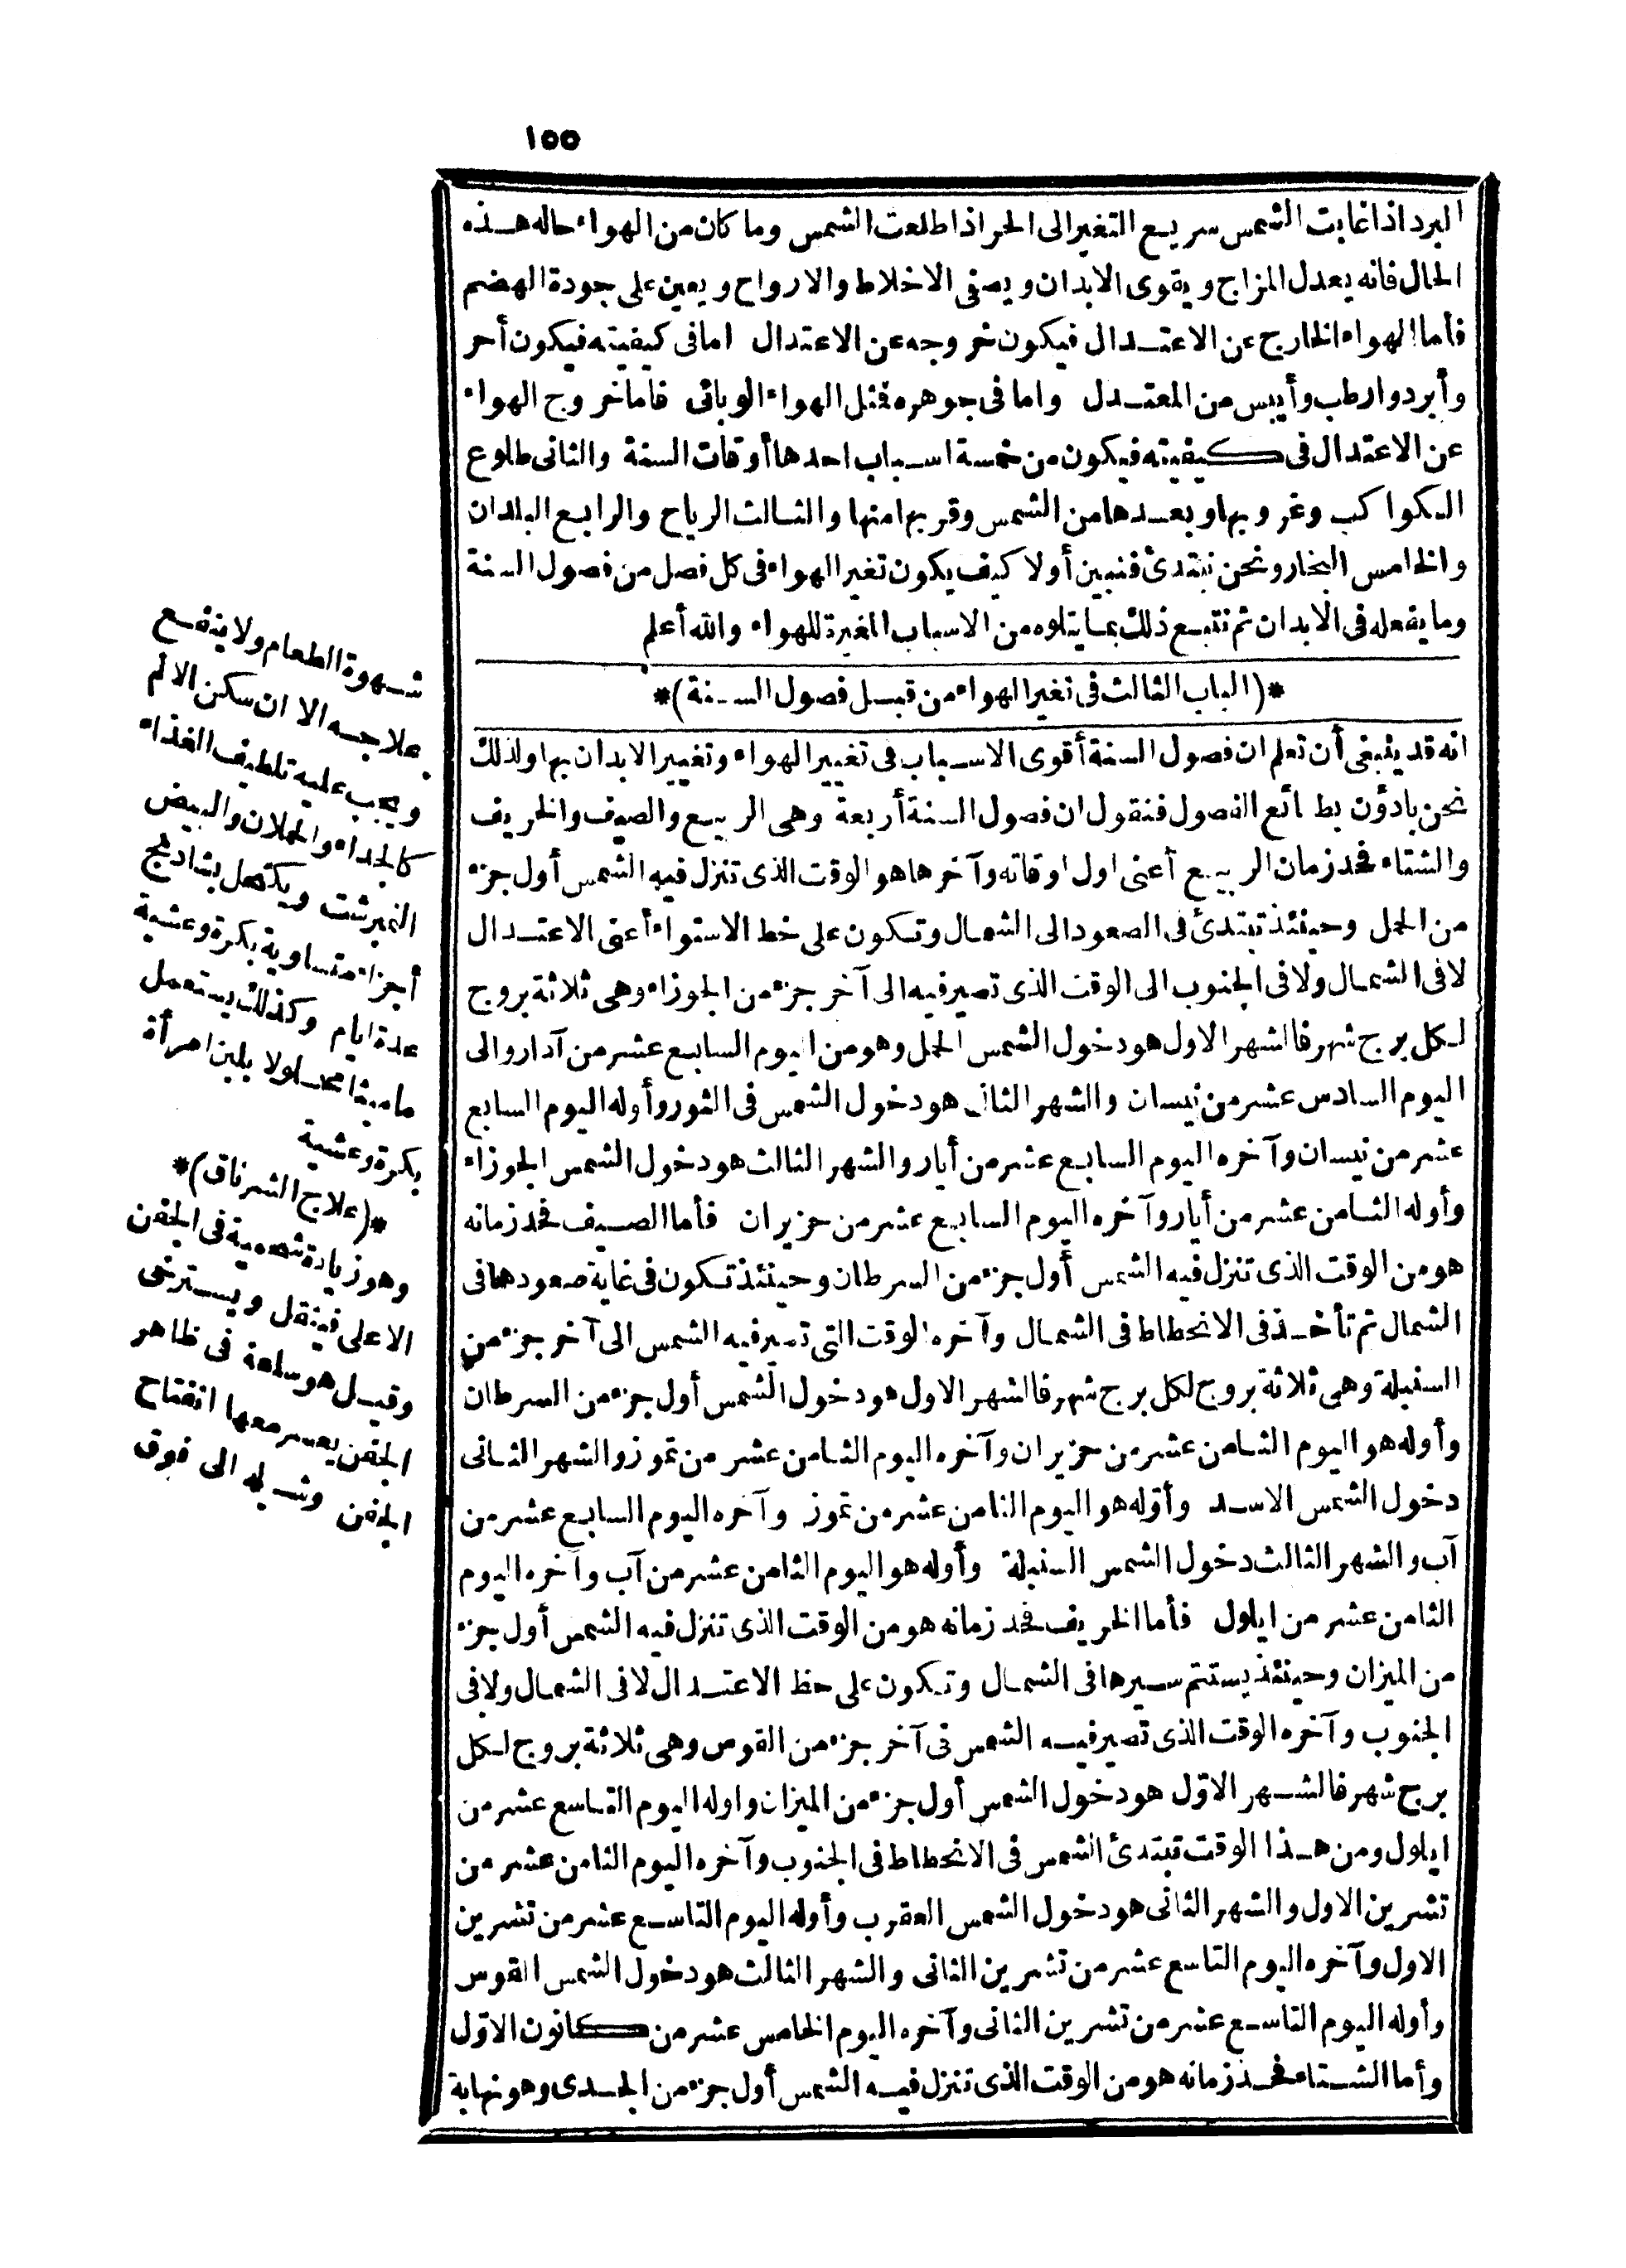 ١٥٥
البرد اذا غابت الشمس سريع التغير الى الحر اذا طلعت الشمس وما كان من الهواء حاله هذه
الحال فانه يعدل المزاج ويقوى الابدان ويصفى الاخلاط والارواح ويعين على جودة الهضم
فأما الهواء الخارج عن الاعتدال فيكون خروجه عن الاعتدال اما فى كيفيته فيكون أحر
وأبرد وارطب وأيبس من المعتدل واما فى جوهره فمثل الهواء الوبائى فاما خروج الهواء
عن الاعتدال فى كيفيته فيكون من خمسة اسباب احدها أوقات السنة والثانى طلوع
الكواكب وغروبها وبعدها من الشمس وقربها منها والثالث الرياح والرابع البلدان
والخامس البخار ونحن نبتدئ فنبين أولا كيف يكون تغير الهواء فى كل فصل من فصول السنة
وما يفعله فى الابدان ثم نتبع ذلك بما يتلوه من الاسباب المغيرة للهواء والله أعلم
*(الباب الثالث فى تغير الهواء من قبل فصول السنة)*
انه قد ينبغى أن تعلم ان فصول السنة أقوى الاسباب فى تغيير الهواء وتغيير الابدان بها ولذلك
نحن بادؤن بطبائع الفصول فنقول ان فصول السنة أربعة وهى الربيع والصيف والخريف
والشتاء فحد زمان الربيع أعنى اول اوقاته وآخرها هو الوقت الذى تنزل فيه الشمس أول جزء
من الحمل وحينئذ تبتدئ فى الصعود الى الشمال وتكون على خط الاستواء أعنى الاعتدال
لا فى الشمال ولا فى الجنوب الى الوقت الذى تصير فيه الى آخر جزء من الجوزاء وهى ثلاثة بروج
لكل برج شهر فالشهر الاول هو دخول الشمس الحمل وهو من اليوم السابع عشر من آدار والى
اليوم السادس عشر من نيسان والشهر الثانى هو دخول الشمس فى الثور وأوله اليوم السابع
عشر من نيسان وآخره اليوم السابع عشر من أيار والشهر الثالث هو دخول الشمس الجوزاء
وأوله الثامن عشر من أيار وآخره اليوم السابع عشر من حزيران فأما الصيف فحد زمانه
هو من الوقت الذى تنزل فيه الشمس أول جزء من السرطان وحينئذ تكون فى غاية صعودها فى
الشمال ثم تأخذ فى الانحطاط فى الشمال وآخره الوقت التى تصير فيه الشمس الى آخر جزء من
السنبلة وهى ثلاثة بروج لكل برج شهر فالشهر الاول هو دخول الشمس أول جزء من السرطان
وأوله هو اليوم الثامن عشر من حزيران وآخره اليوم الثامن عشر من تموز والشهر الثانى
دخول الشمس الاسد وأوّله هو اليوم الثامن عشر من تموز وآخره اليوم السابع عشر من
آب والشهر الثالث دخول الشمس السنبلة وأوله هو اليوم الثامن عشر من آب وآخره اليوم
الثامن عشر من ايلول فأما الخريف فحد زمانه هو من الوقت الذى تنزل فيه الشمس أول جزء
من الميزان وحينئذ يستتم سيرها فى الشمال وتكون على خط الاعتدال لا فى الشمال ولا فى
الجنوب وآخره الوقت الذى تصير فيه الشمس فى آخر جزء من القوس وهى ثلاثة بروج لكل
برج شهر فالشهر الاوّل هو دخول الشمس أول جزء من الميزان واوله اليوم التاسع عشر من
ايلول ومن هذا الوقت تبتدئ الشمس فى الانحطاط فى الجنوب وآخره اليوم الثامن عشر من
تشرين الاول والشهر الثانى هو دخول الشمس العقرب وأوله اليوم التاسع عشر من تشرين
الاول وآخره اليوم التاسع عشر من تشرين الثانى والشهر الثالث هو دخول الشمس القوس
وأوله اليوم التاسع عشر من تشرين الثانى وآخره اليوم الخامس عشر من كانون الاوّل
وأما الشتاء فحد زمانه هو من الوقت الذى تنزل فيه الشمس أول جزء من الجدى وهو نهاية
شهوة الطعام ولا ينفع
علاجه الا ان سكن الالم
ويجب عليه تلطيف الغذاء
كالجداء والحملان والبيض
النمبرشت ويكتحل بشادنج
أجزاء متساوية بكرة وعشية
عدة ايام وكذلك يستعمل
ماميثا محلولا بلبن امرأة
بكرة وعشية
*(علاج الشرناق)*
وهو زيادة شحمية فى الجفن
الاعلى فيثقل ويسترخى
وقيل هو سلعة فى ظاهر
الجفن يعسر معها انفتاح
الجفن وشيله الى فوق